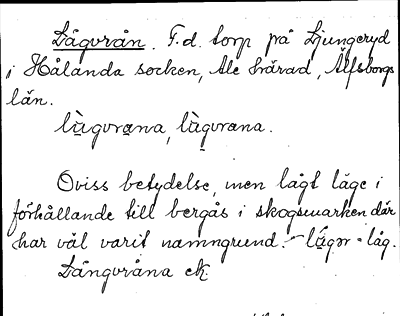 Lågvrån. F.d. torp på Ljungeryd
i Hålanda socken, Ale härad, Älfsborgs
län.
làgvrana, làgvrana.
Oviss betydelse, men lågt läge i
förhållande till bergås i skogsmarken där
har väl varit namngrund. - lágər = låg.
Långvråna ek.